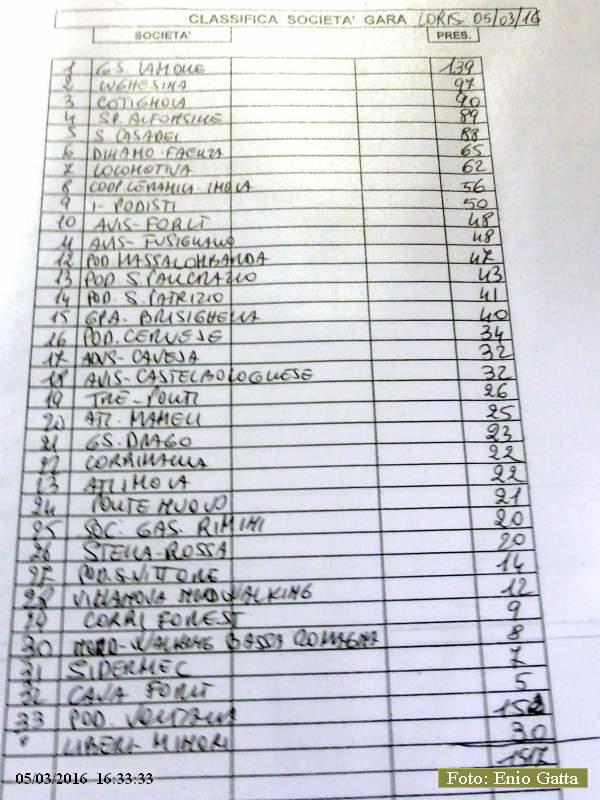 CLASSIFICA SOCIETA' GARA LORIS 05/03/16
SOCIETA' PRES.
1 GS. LAMONE 139
2 LUGHESINA 97
3 COTIGNOLA 90
4 SP. ALFONSINE 89
5 S CASADEI 88
6 DINAMO-FAENZA 65
7 LOCOMOTIVA 62
8 COOP.CERAMICA-IMOLA 56
9 I-PODISTI 50
10 AVIS-FORLÌ 48
11 AVIS-FUSIGNANO 48
12 POD MASSALOMBARDA 47
13 POD. S.PANCRAZIO 43
14 POD. S.PATRIZIO 41
15 GPA. BRISIGHELLA 40
16 POD.CERVESE 34
17 AVIS-CAVEJA 32
18 AVIS-CASTELBOLOGNESE 32
19 TRE-PONTI 26
20 ATL. MAMELI 25
21 GS.DRAGO 23
22 CORRIMANIA 22
23 ATL IMOLA 22
24 PONTE NUOVO 21
25 SOC. GAS. RIMINI 20
26 STELLA-ROSSA 20
27 POD.S.VITTORE 14
28 VILLANOVA NORDWALKING 12
29 CORRI FOREST 9
30 NORD-WALKING BASSA ROMAGNA 8
31 SIDERMEC 7
32 CAVA FORLÌ 5
33 POD. VOLTANA
* LIBERI-MINORI 30
1517
05/03/2016 16:33:33
Foto: Enio Gatta